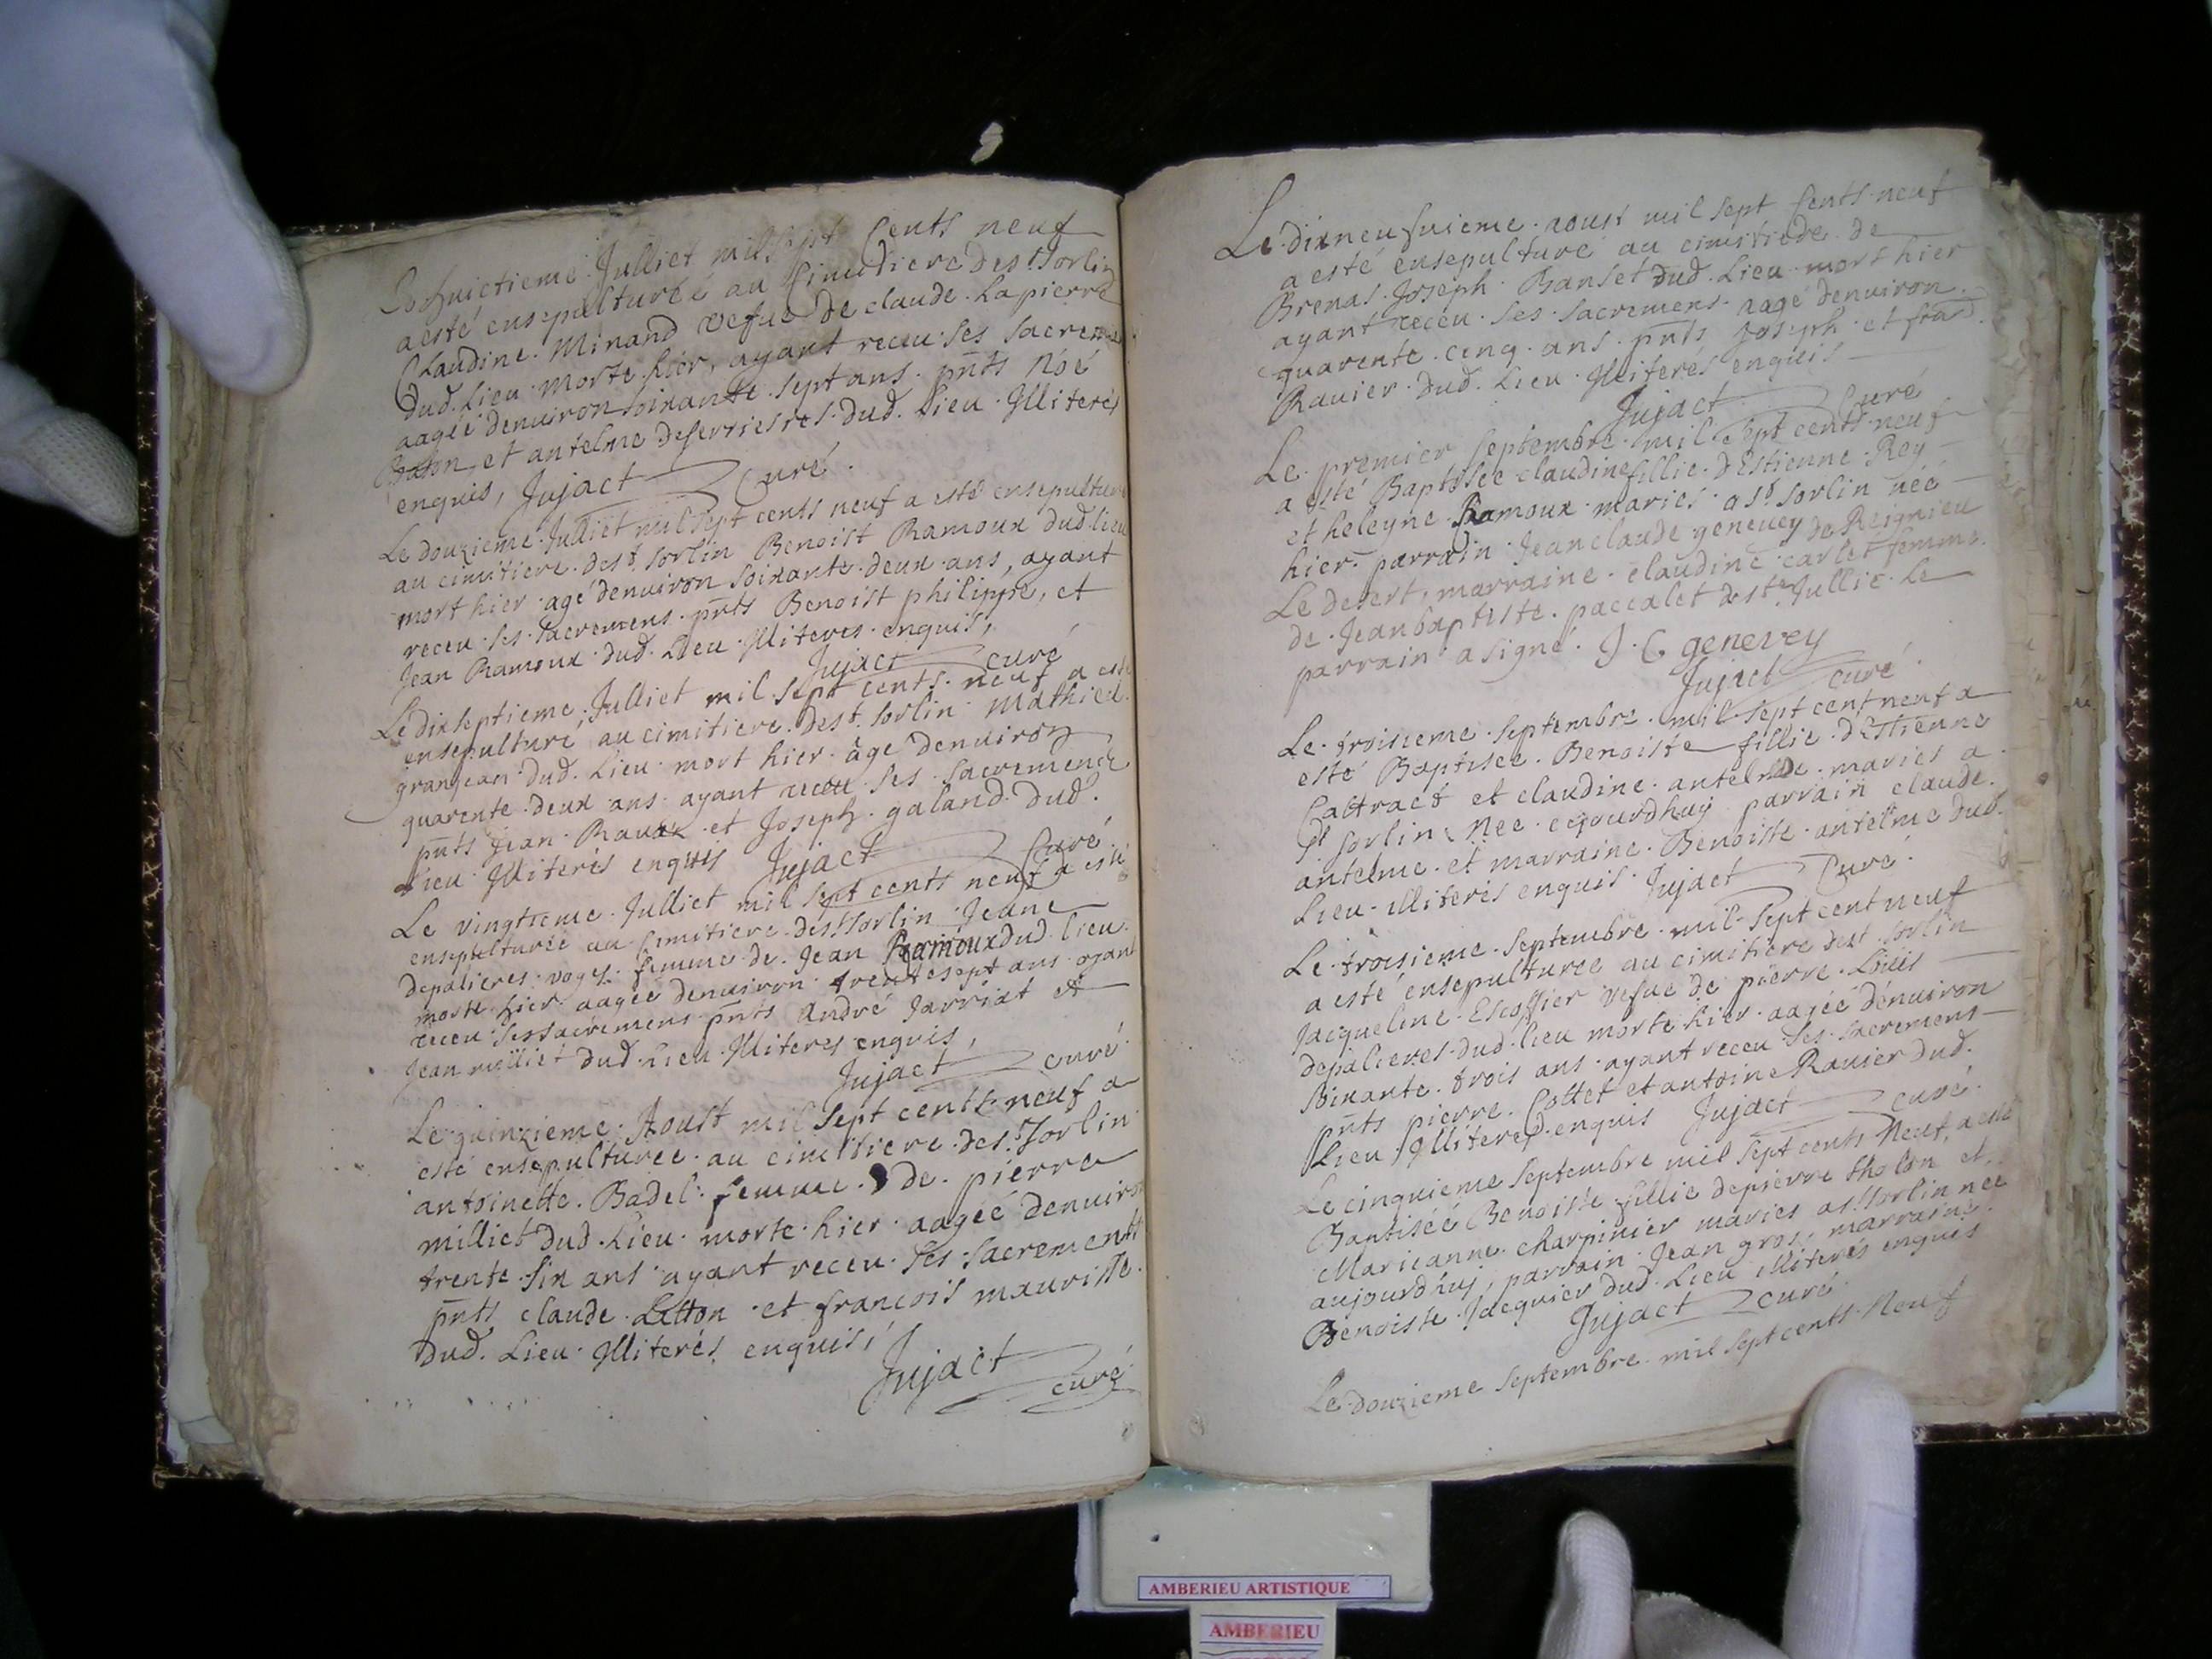 Le huictieme Julliet mil sept Cents neuf
a esté ensepulturéé au Cimitiere de st. Sorlin
Claudine Minand vefue de claude Lapierre
dud. Lieu morte hier, ayant receu ses sacremens
aagéé denuiron soixante sept ans. pnts Noé
et antelme deferrieres dud. Lieu Illiterés
enquis, Jujact Curé.
Le douzieme Julliet mil sept cents neuf a esté ensepulturé
au cimitiere de st. Sorlin Benoist Ramoux dud. lieu
mort hier agé denuiron soixante deux ans, ayant
receu ses sacremens pnts Benoist philippe, et
Jean Ramoux dud. Lieu Illiteres enquis,
Jujact curé
Le dixseptieme Julliet mil sept cents neuf a esté
ensepulturé au cimitiere de st. Sorlin Mathieu
granjean dud. Lieu mort hier âgé denuiron
quarente deux ans ayant receu ses sacremends
pnts Jean Raux et Joseph galand dud.
Lieu Illiterés enquis Jujact Curé
Le vingtieme Julliet mil sept cents neuf a esté
ensepulturéé au Cimitiere de st Sorlin Jeane
depalieres voges femme de Jean Ramoux dud. lieu
morte hier aagéé denuiron trente sept ans ayant
receu ses sacremens pnts André Jarriat et
Jean milliet dud. Lieu Illiteres enquis,
Jujact curé
Le quinzieme Aoust mil sept cents neuf a
esté ensepulturéé au cimitiere de st. Sorlin
antoinette Badel femme de pierre
milliet dud. Lieu morte hier aagéé denuiron
trente six ans ayant receu ses sacrements
pnts claude Litton et francois mauriste
dud. Lieu Illiterés enquis,
Jujact curé
Le dixneufuieme aoust mil sept Cents neuf
a esté ensepulturé au cimitiede de
Brenas Joseph Banset dud. Lieu mort hier
ayant receu ses sacremens aagé denuiron
quarente cinq ans pnts Joseph et
Rauier dud. Lieu Illiterés enquis
Jujact Curé
Le premier septembre mil sept cents neuf
a esté Baptisée claudine fillie d'Estienne Rey
et heleyne Ramoux mariés a st. Sorlin néé
hier parrain Jean claude geneuey de Reignieu
Le desert, marraine claudine carlet femme
de Jean baptiste paccalet de ste Jullie Le
parrain a signé. J. C. genevey
Jujact curé
Le troisieme septembre mil sept cent neuf a
esté Baptisee Benoiste fillie d'Estienne
Cattract et claudine antelme maries a
st Sorlin Nee cejourdhuy parrain claude
antelme et marraine Benoiste antelme dud.
Lieu illiterés enquis Jujact Curé.
Le troisieme septembre mil sept cent neuf
a esté ensepulturee au cimitiere de st Sorlin
Jacqueline Escoffier vefue de pierre Loüis
depalieres dud. lieu morte hier aagéé denuiron
soixante trois ans ayant receu ses sacremens
pnts pierre Cottet et antoine Rauier dud.
Lieu Illiteres enquis Jujact curé.
Le cinquieme septembre mil sept cents Neuf, a esté
Baptiséé Benoiste fillie de pierre tholon et
Marieanne charpinier maries a st. Sorlin nee
aujourdhuj, parrain Jean gros, marraine
Benoiste Jacquier dud. Lieu illiterés enquis
Jujact curé
Le douzieme septembre mil sept cents Neuf
AMBERIEU ARTISTIQUE
AMBERIEU